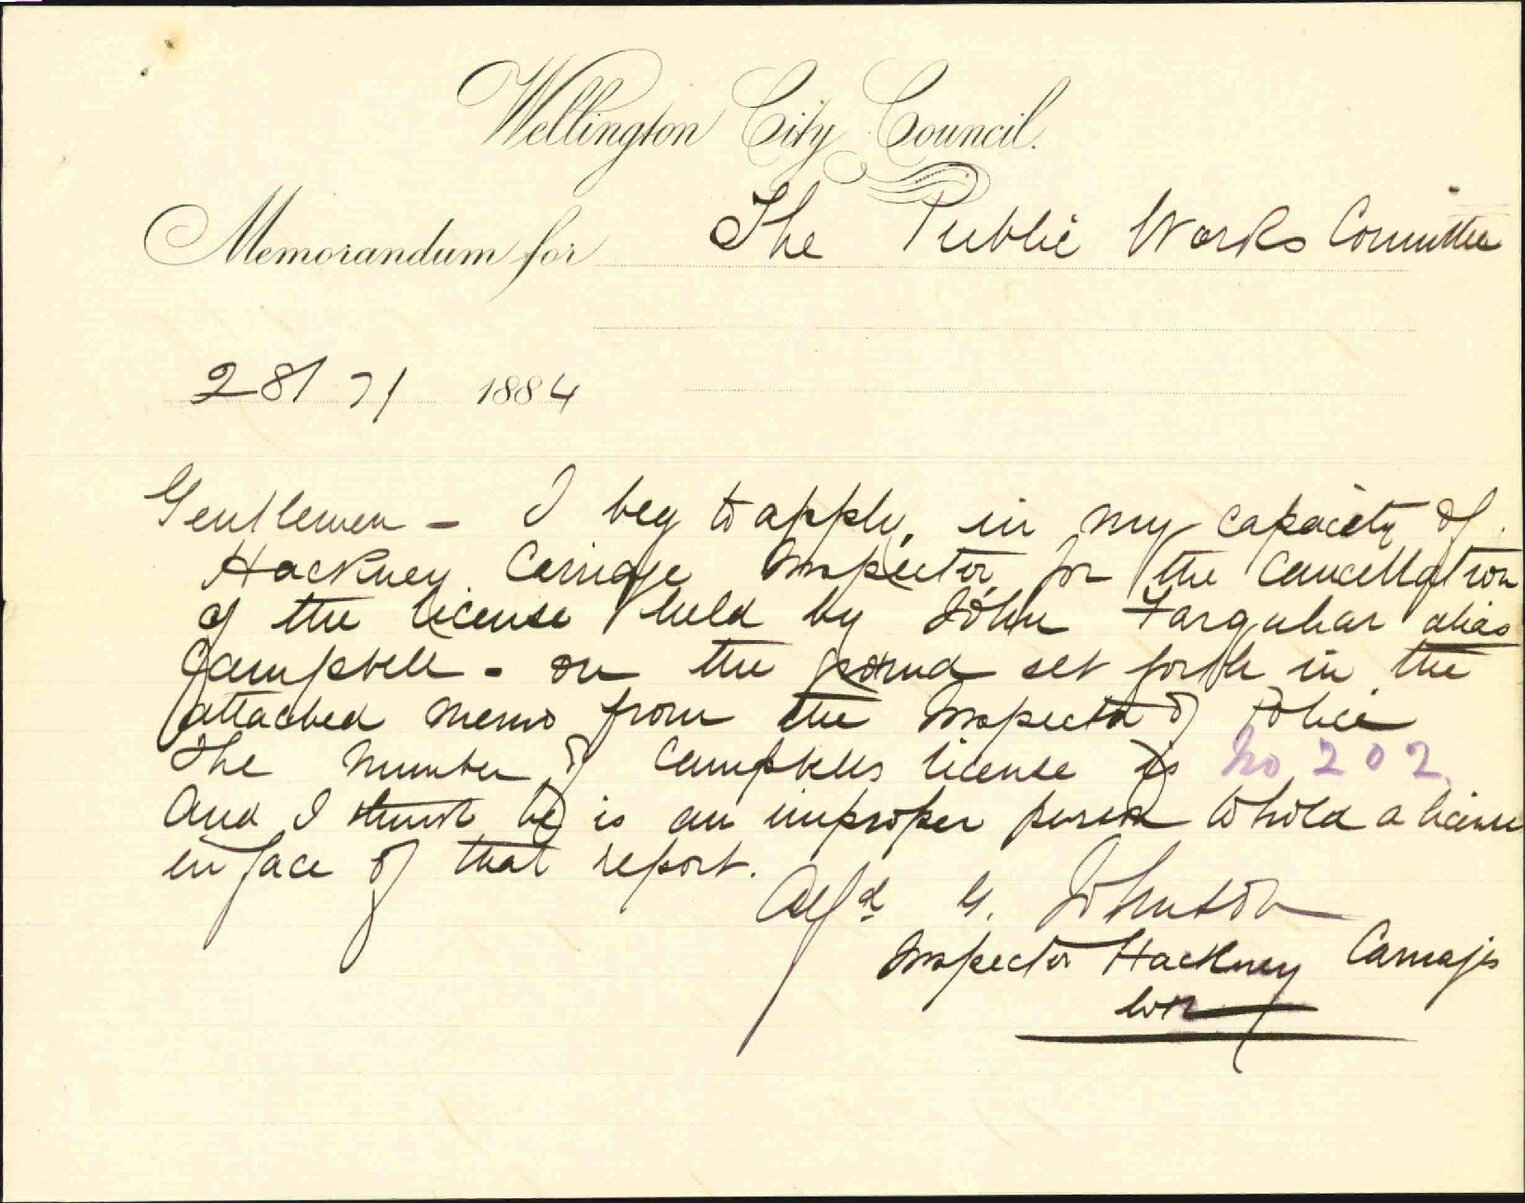 Wellington City Council.
Memorandum for The Public Works Committee
28/7/1884
Gentlemen - I beg to apply, in my capacity of
Hackney Carriage Inspector for the Cancellation
of the license held by John Farquhar alias
Campbell - on the ground set forth in the
attached memo from the Inspector of Police
The number of Campbells license is No 202.
And I think he is an improper person to hold a license
in face of that report.
Alfd G. Johnston
Inspector Hackney Carriages